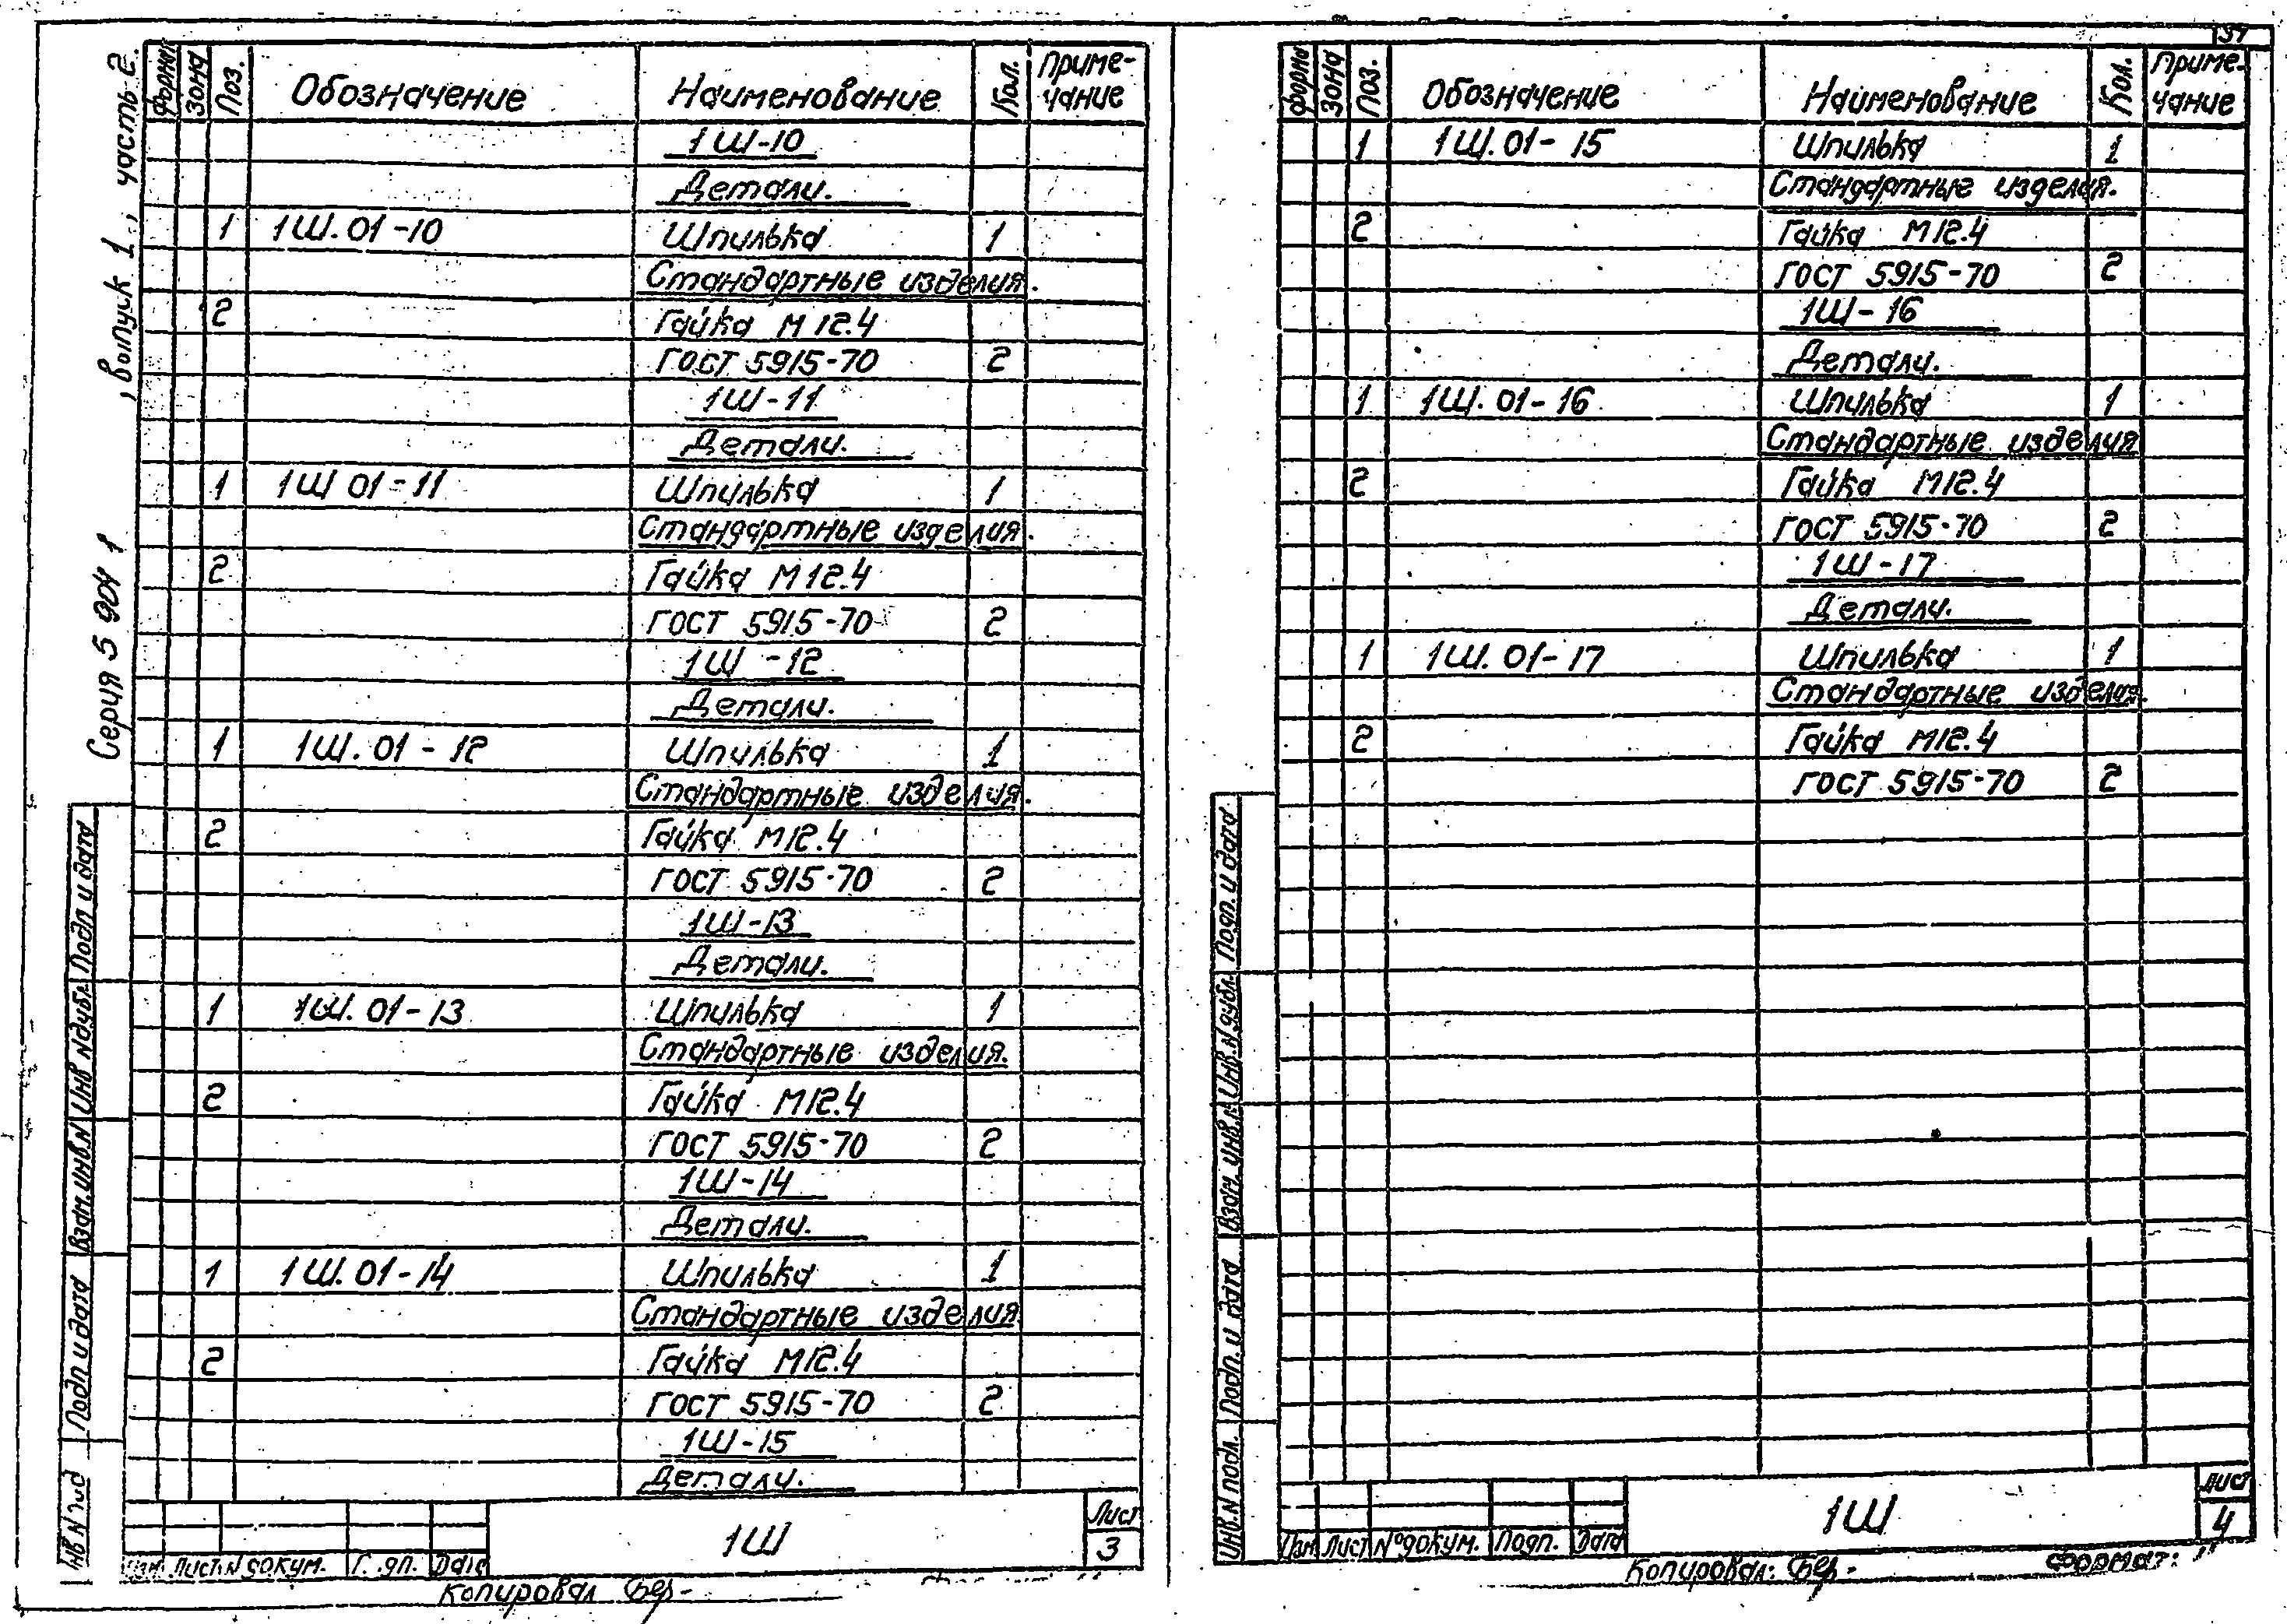 Серия 5 904 1 , выпуск 1 , часть 2.
Формат Зона Поз. Обозначение Наименование Кол. Приме-
чание
1Ш-10
Детали.
1 1Ш.01-10 Шпилька 1
Стандартные изделия.
2 Гайка М12.4
ГОСТ 5915-70 2
1Ш-11
Детали.
1 1Ш 01-11 Шпилька 1
Стандартные изделия.
2 Гайка М12.4
ГОСТ 5915-70 2
1Ш -12
Детали.
1 1Ш.01-12 Шпилька 1
Стандартные изделия.
2 Гайка М12.4
ГОСТ 5915-70 2
1Ш-13
Детали.
1 1Ш.01-13 Шпилька 1
Стандартные изделия.
2 Гайка М12.4
ГОСТ 5915-70 2
1Ш-14
Детали.
1 1Ш.01-14 Шпилька 1
Стандартные изделия
2 Гайка М12.4
ГОСТ 5915-70 2
1Ш-15
Детали.
Подп и дата
Инв N дубл.
Взам.инв.N
Подп и дата
Инв N под
Изм Лист N докум. Дата
1Ш
Лист
3
Копировал Бер-
Форма Зона Поз. Обозначение Наименование Кол. Приме-
чание
1 1Ш.01-15 Шпилька 1
Стандартные изделия.
2 Гайка М12.4
ГОСТ 5915-70 2
1Ш-16
Детали.
1 1Ш.01-16 Шпилька 1
Стандартные изделия
2 Гайка М12.4
ГОСТ 5915-70 2
1Ш-17
Детали.
1 1Ш.01-17 Шпилька 1
Стандартные изделия.
2 Гайка М12.4
ГОСТ 5915-70 2
Подп. и дата
Инв.N дубл.
Взам. инв.N
Подп. и дата
Инв.N подл.
Изм Лист №докум. Подп. Дата
1Ш
Лист
4
Копировал: Бер-
Формат: